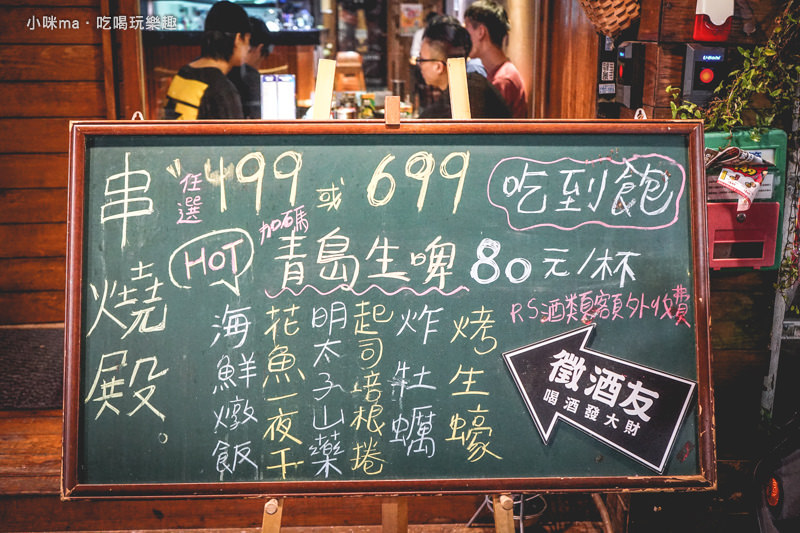 小咪ma·吃喝玩樂趣
串燒殿。
任選 499 或 699 吃到飽
HOT 加碼 青島生啤 80元/杯
P.S酒類需額外收費
烤生蠔
炸牡蠣
起司培根捲
明太子山藥
花魚一夜干
海鮮燉飯
徵酒友
喝酒發大財